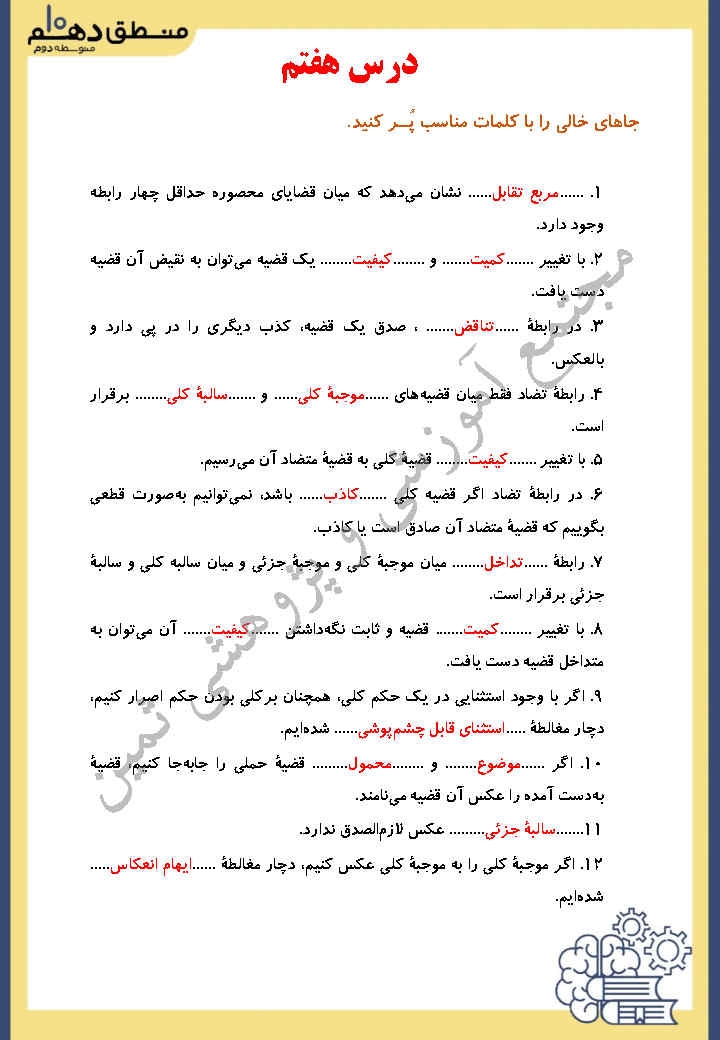 منطق دهم ۱۰
متوسطه دوم
درس هفتم
جاهای خالی را با کلمات مناسب پُــر کنید.
۱. ......مربع تقابل...... نشان می‌دهد که میان قضایای محصوره حداقل چهار رابطه
وجود دارد.
۲. با تغییر .......کمیت....... و ........کیفیت........ یک قضیه می‌توان به نقیض آن قضیه
دست یافت.
۳. در رابطۀ ......تناقض....... ، صدق یک قضیه، کذب دیگری را در پی دارد و
بالعکس.
۴. رابطۀ تضاد فقط میان قضیه‌های ......موجبۀ کلی...... و .......سالبۀ کلی........ برقرار
است.
۵. با تغییر .......کیفیت........ قضیۀ کلی به قضیۀ متضاد آن می‌رسیم.
۶. در رابطۀ تضاد اگر قضیه کلی .......کاذب...... باشد، نمی‌توانیم به‌صورت قطعی
بگوییم که قضیۀ متضاد آن صادق است یا کاذب.
۷. رابطۀ ......تداخل........ میان موجبۀ کلی و موجبۀ جزئی و میان سالبه کلی و سالبۀ
جزئی برقرار است.
۸. با تغییر ........کمیت....... قضیه و ثابت نگه‌داشتن .......کیفیت....... آن می‌توان به
متداخل قضیه دست یافت.
۹. اگر با وجود استثنایی در یک حکم کلی، همچنان برکلی بودن حکم اصرار کنیم،
دچار مغالطۀ .....استثنای قابل چشم‌پوشی...... شده‌ایم.
۱۰. اگر ......موضوع........ و ........محمول......... قضیۀ حملی را جابه‌جا کنیم، قضیۀ
به‌دست آمده را عکس آن قضیه می‌نامند.
۱۱.......سالبۀ جزئی......... عکس لازم‌الصدق ندارد.
۱۲. اگر موجبۀ کلی را به موجبۀ کلی عکس کنیم، دچار مغالطۀ ......ایهام انعکاس.....
شده‌ایم.
مجتمع آموزشی و پژوهشی ثمین